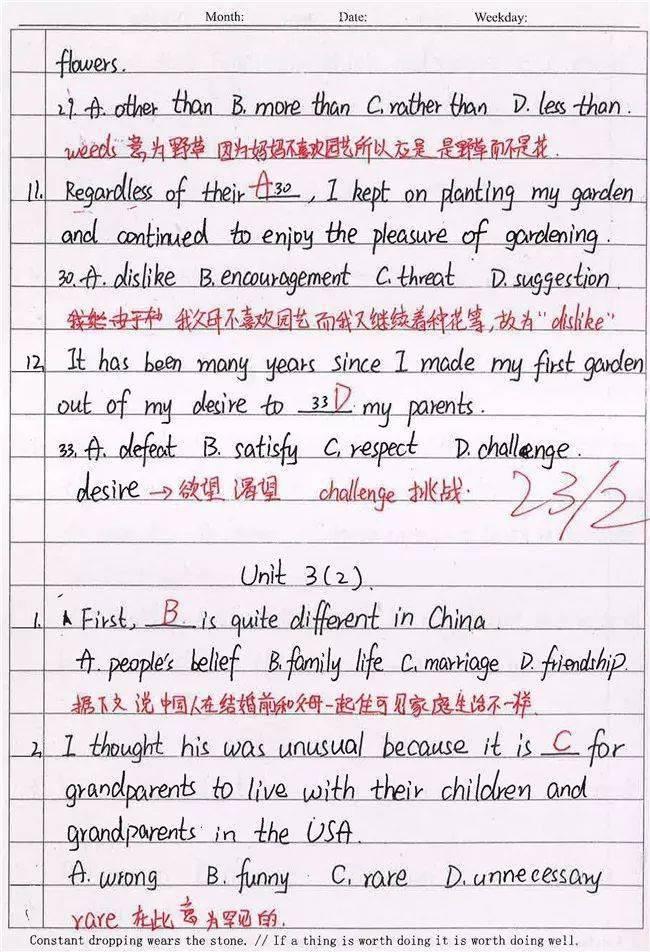 Month: Date: Weekday:
flowers.
29. A. other than B. more than C. rather than D. less than.
weeds 意为野草 因为妈妈不喜欢园艺所以应是 是野草而不是花.
11. Regardless of their A 30, I kept on planting my garden
and continued to enjoy the pleasure of gardening.
30. A. dislike B. encouragement C. threat D. suggestion.
我父母不喜欢园艺 而我又继续着种花等, 故为“dislike”
12. It has been many years since I made my first garden
out of my desire to 33 D my parents.
33. A. defeat B. satisfy C. respect D. challenge.
desire → 欲望 渴望 challenge 挑战.
23/2
Unit 3 (2).
1. First, B is quite different in China.
A. people's belief B. family life C. marriage D. friendship.
据下文 说中国人在结婚前和父母一起住可见家庭生活不一样.
2. I thought his was unusual because it is C for
grandparents to live with their children and
grandparents in the USA.
A. wrong B. funny C. rare D. unnecessary
rare 在此意为罕见的.
Constant dropping wears the stone. // If a thing is worth doing it is worth doing well.